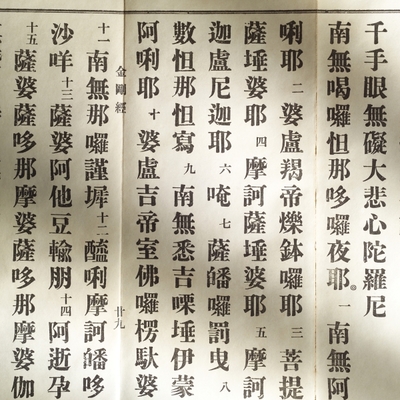 千手眼無礙大悲心陀羅尼
南無喝囉怛那哆囉夜耶一南無阿
唎耶二婆盧羯帝爍鉢囉耶三菩提
薩埵婆耶四摩訶薩埵婆耶五摩訶
迦盧尼迦耶六唵七薩皤囉罰曳八
數怛那怛寫九南無悉吉嘌埵伊蒙
阿唎耶十婆盧吉帝室佛囉楞馱婆
金剛經
廿九
十一南無那囉謹墀十二醯唎摩訶皤哆
沙咩十三薩婆阿他豆輸朋十四阿逝孕
十五薩婆薩哆那摩婆薩哆那摩婆伽